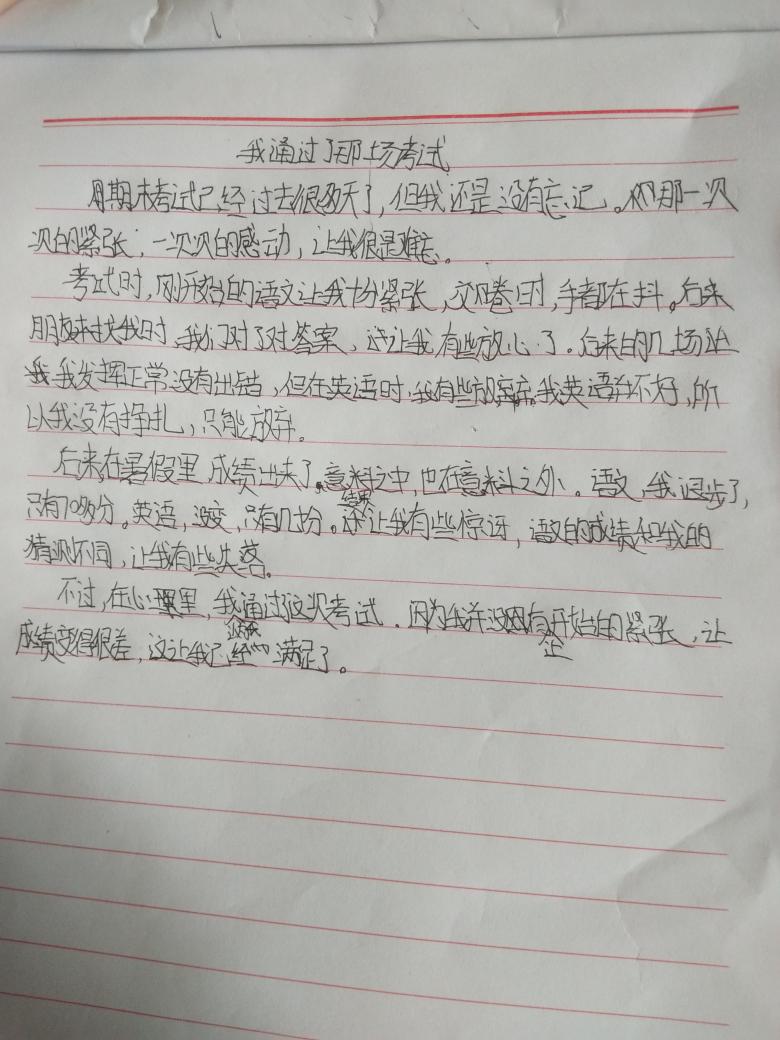 我通过了那场考试
期末考试已经过去很多天了，但我还是没有忘记。那一次
次的紧张，一次次的感动，让我很是难忘。
考试时，刚开始的语文让我十分紧张，交卷时，手都在抖。后来
朋友来找我时，我们对了对答案，这让我有些放心了。后来的几场
我发挥正常没有出错，但在英语时，我有些放弃。我英语并不好，所
以我没有挣扎，只能放弃。
后来在暑假里，成绩出来了。意料之中，也在意料之外。语文，我退步了，
只有70多分。英语，没变，只有几分。结果让我有些惊讶，语文的成绩和我的
猜测不同，让我有些失落。
不过，在心里，我通过这次考试，因为我并没有开始的紧张，让
成绩变得很差，这让我已经满足了。